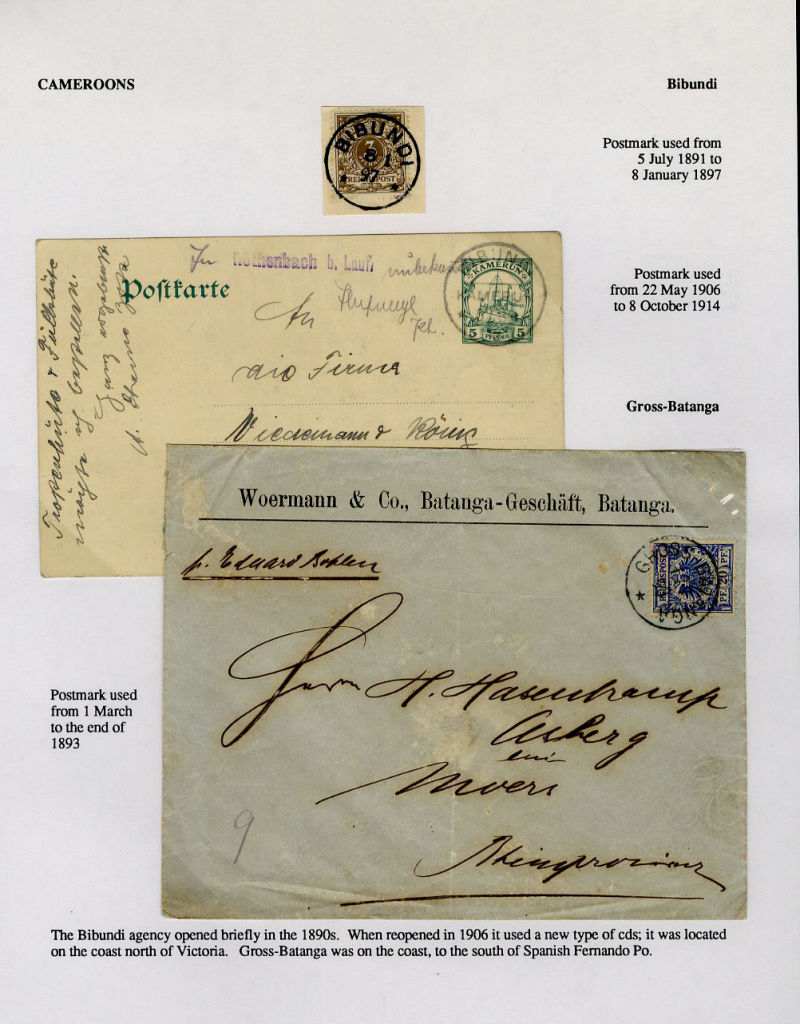 CAMEROONS
Bibundi
BIBUNDI
8 1
97
3
REICHSPOST
Postmark used from
5 July 1891 to
8 January 1897
In Röthenbach b. Lauf. unbekannt
Postkarte
KAMERUN
5 PFENNIG 5
Postmark used
from 22 May 1906
to 8 October 1914
An
die Firma
Wiedemann & König
Tropenhüte &
möchte ich bestellen.
Gross-Batanga
Woermann & Co., Batanga-Geschäft, Batanga.
p. Eduard Bohlen
GROSS-BATANGA
REICHSPOST
PF. 20 PF.
Herrn H. Hasenkamp
Asberg
bei
Moers
Rheinprovinz
9
Postmark used
from 1 March
to the end of
1893
The Bibundi agency opened briefly in the 1890s. When reopened in 1906 it used a new type of cds; it was located
on the coast north of Victoria. Gross-Batanga was on the coast, to the south of Spanish Fernando Po.